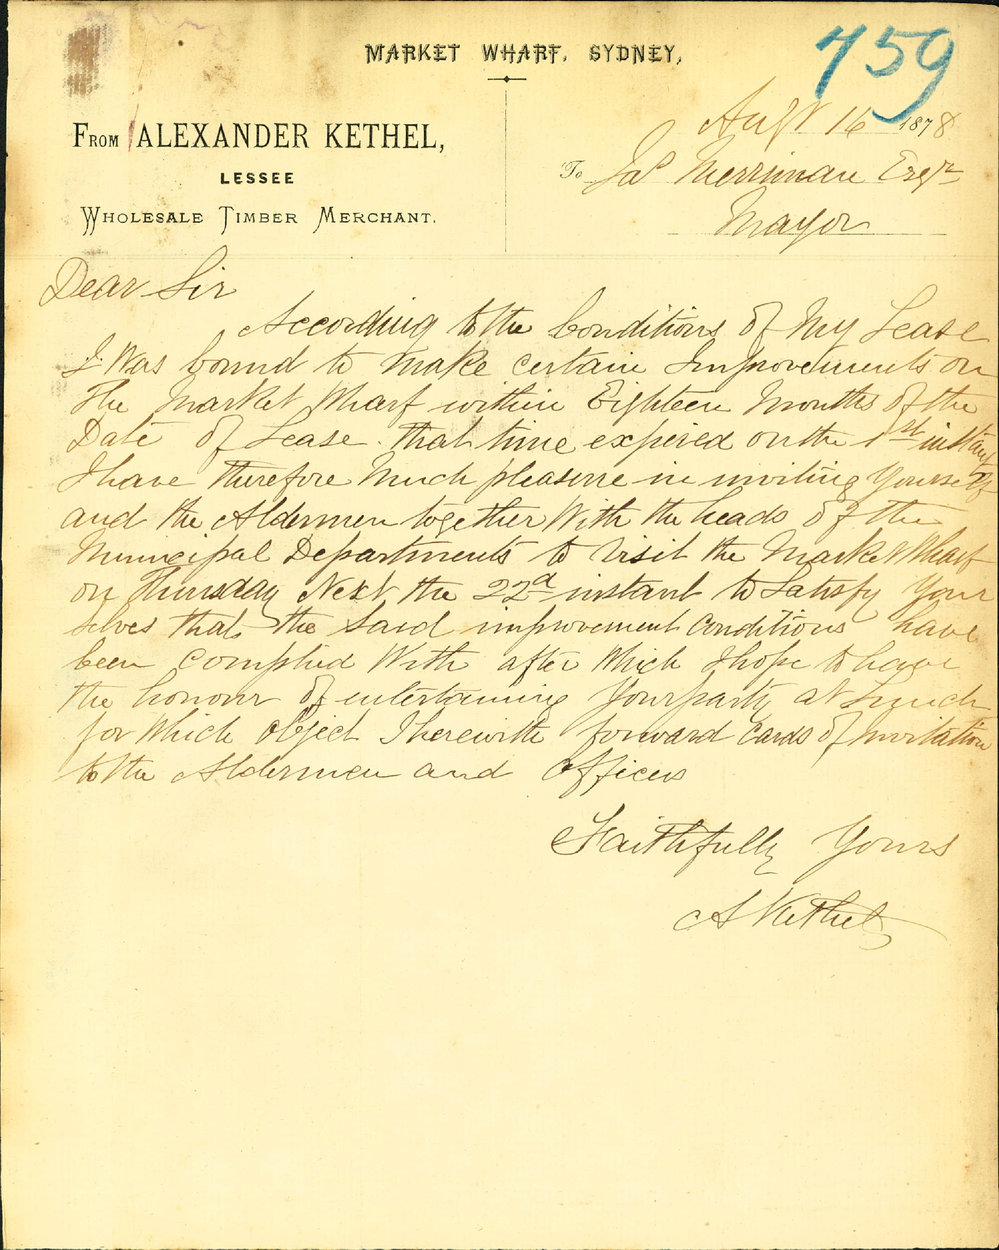 759
MARKET WHARF, SYDNEY,
FROM ALEXANDER KETHEL,
LESSEE
WHOLESALE TIMBER MERCHANT.
Augt 16 1878
To Jas Merriman Esqr
Mayor
Dear Sir
According to the Conditions of My Lease
I Was bound to Make certain Improvements on
The Market Wharf within Eighteen Months of the
Date of Lease. that time expired on the 1st instant
I have therefore Much pleasure in inviting Yourself
and the Aldermen together With the heads of the
Municipal Departments to Visit the Market Wharf
on Thursday Next the 22d instant to Satisfy Your
selves that the Said improvement Conditions have
been Complied With after Which I hope to have
the honour of entertaining Your party at Lunch
for Which Object I herewith forward Cards of Invitation
to the Aldermen and Officers
Faithfully Yours
A Kethel